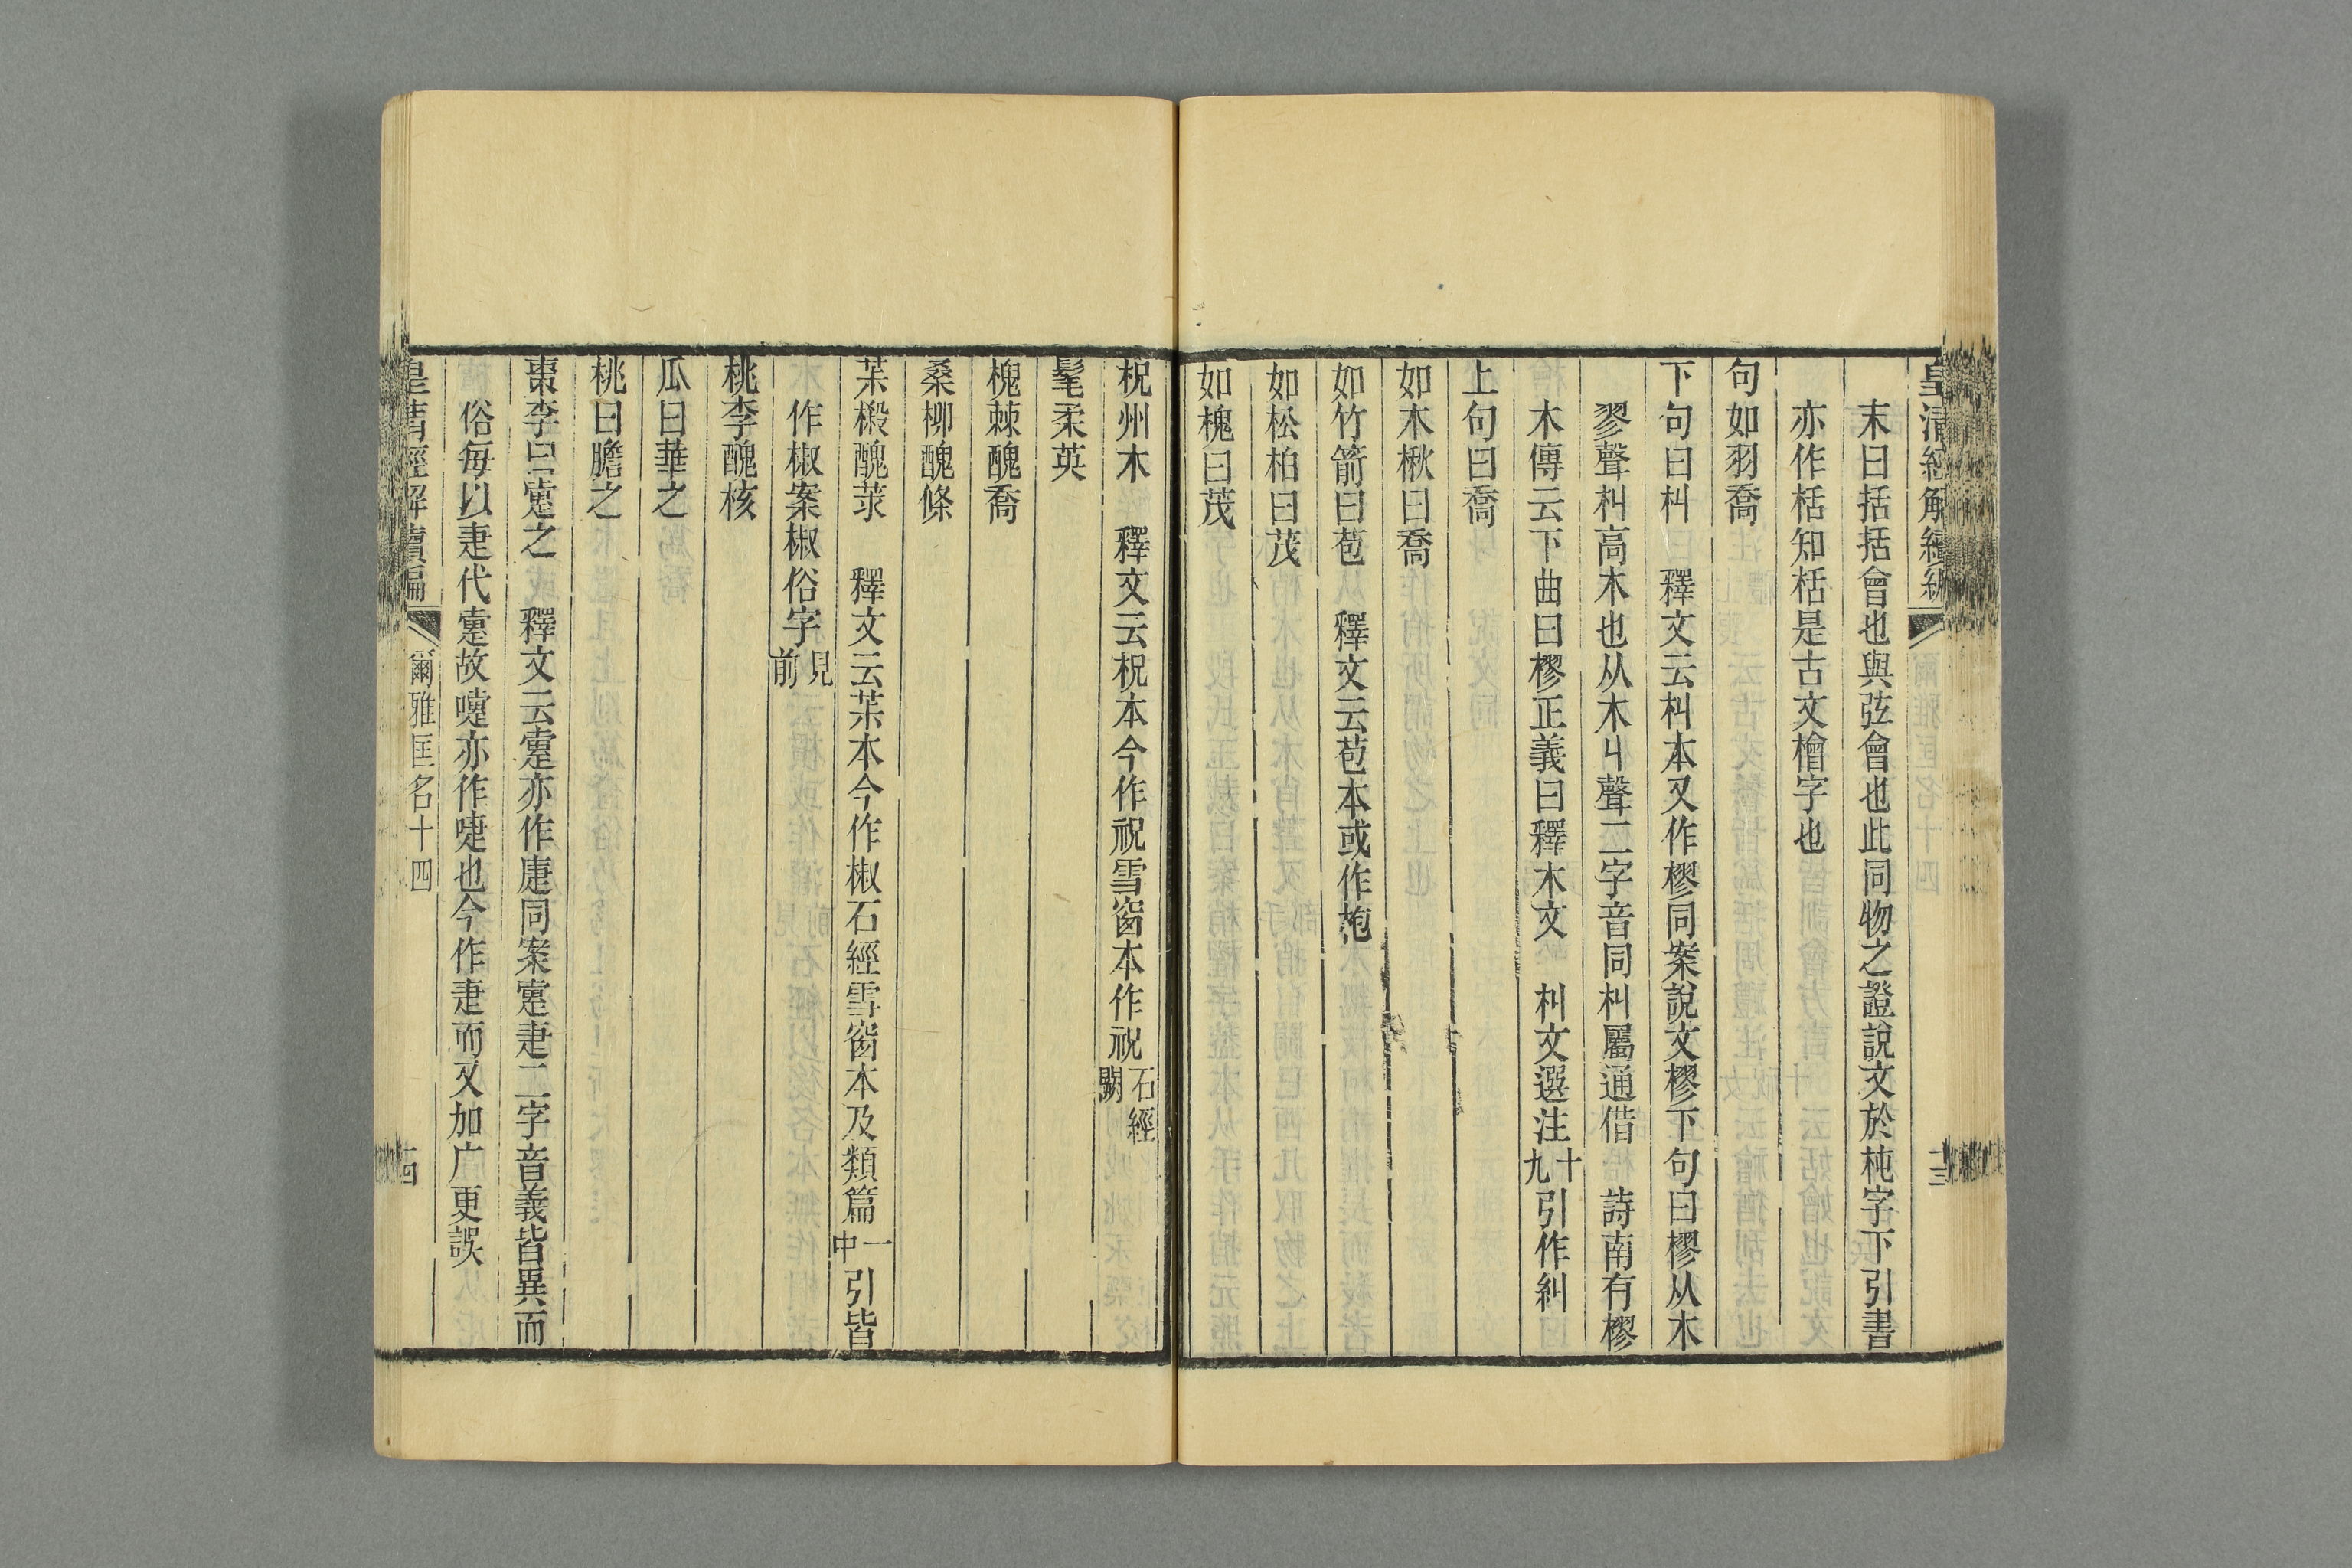 皇清經解續編
末曰括括會也與弦會也此同物之證說文於杶字下引書
亦作栝知栝是古文檜字也
句如羽喬
下句曰朻　釋文云朻本又作樛同案說文樛下句曰樛从木
翏聲朻高木也从木丩聲二字音同朻屬通借　詩南有樛
木傳云下曲曰樛正義曰釋木文　朻文選注十九引作糾
上句曰喬
如木楸曰喬
如竹箭曰苞　釋文云苞本或作枹
如松柏曰茂
如槐曰茂
祝州木　釋文云柷本今作祝雪窗本作祝石經闕
髦柔英
槐棘醜喬
桑柳醜條
茮樧醜莍　釋文云茮本今作椒石經雪窗本及類篇一中引皆
作椒案椒俗字見前
桃李醜核
瓜曰華之
桃曰膽之
棗李曰疐之　釋文云疐亦作𤴡同案疐疌二字音義皆異而
俗每以疌代疐故嚏亦作啑也今作疌而又加广更誤
皇清經解續編　爾雅匡名十四　十四